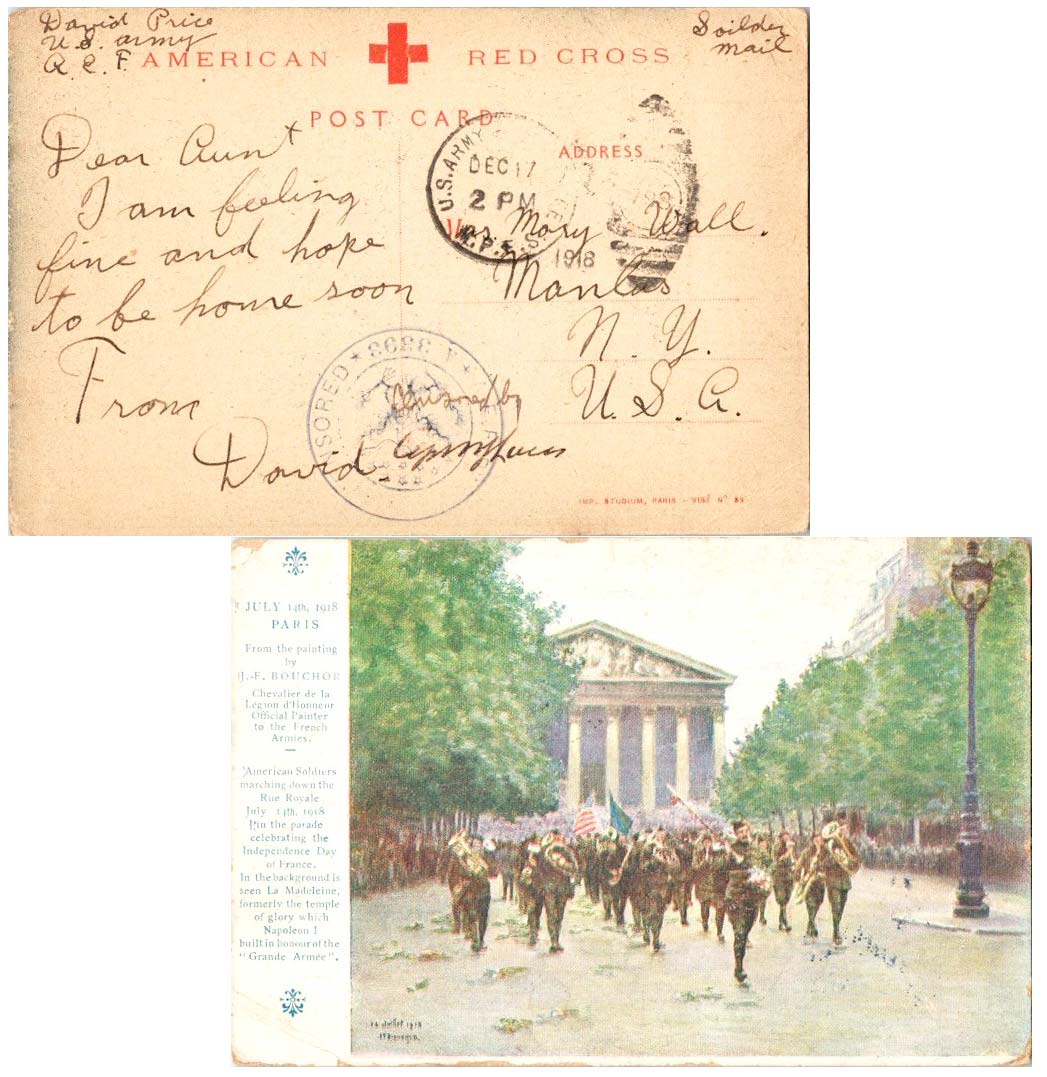 David Price
U.S. army
A. E. F.
Soilder
mail
AMERICAN RED CROSS
POST CARD
ADDRESS
U.S. ARMY
DEC 17
2 PM
1918
Dear Aunt
I am feeling
fine and hope
to be home soon
From
David
Mrs. Mary Wall.
Manlas
N. Y.
U. S. A.
A. 3893
Censored by
IMP. STUDIUM, PARIS - VISÉ Nº 89
JULY 14th, 1918
PARIS
From the painting
by
J.-F. BOUCHOR
Chevalier de la
Légion d'Honneur
Official Painter
to the French
Armies.
American Soldiers
marching down the
Rue Royale
July 14th, 1918
in the parade
celebrating the
Independence Day
of France.
In the background is
seen La Madeleine,
formerly the temple
of glory which
Napoleon I
built in honour of the
"Grande Armée".
14 Juillet 1918